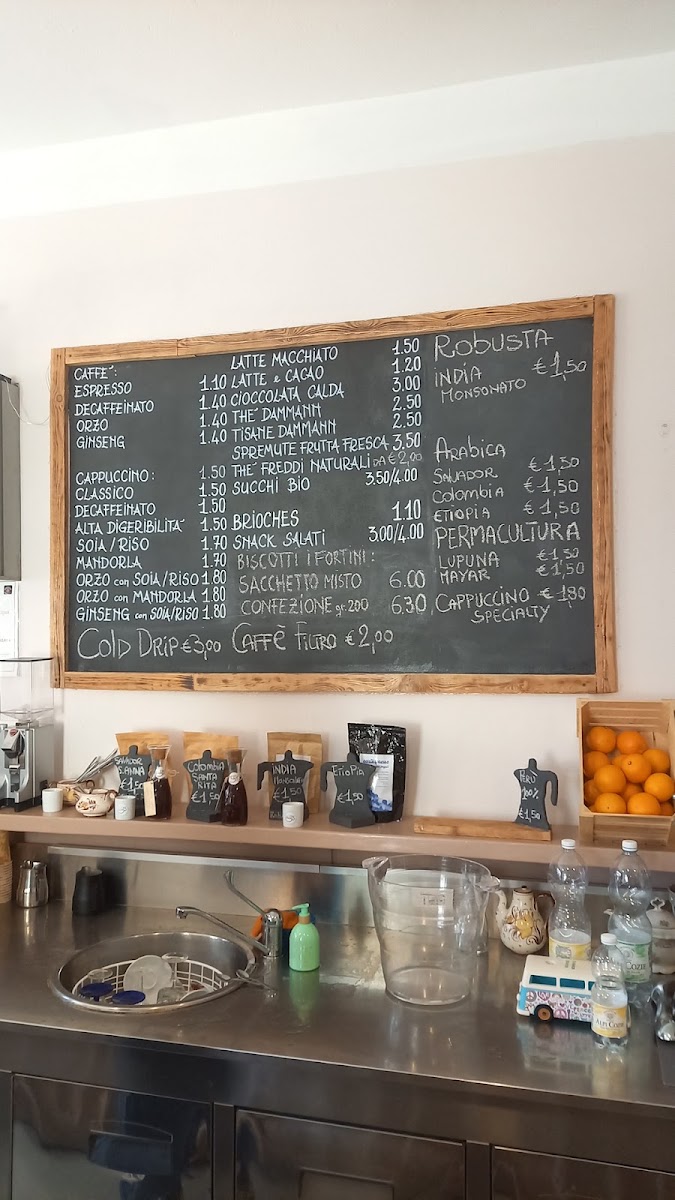 CAFFE':
ESPRESSO 1.10
DECAFFEINATO 1.40
ORZO 1.40
GINSENG 1.40
CAPPUCCINO: 1.50
CLASSICO 1.50
DECAFFEINATO 1.50
ALTA DIGERIBILITA' 1.50
SOIA / RISO 1.70
MANDORLA 1.70
ORZO con SOIA/RISO 1.80
ORZO con MANDORLA 1.80
GINSENG con SOIA/RISO 1.80
COLD DRIP €3,00
LATTE MACCHIATO 1.50
LATTE e CACAO 1.20
CIOCCOLATA CALDA 3.00
THE' DAMMANN 2.50
TISANE DAMMANN 2.50
SPREMUTE FRUTTA FRESCA 3.50
THE' FREDDI NATURALI DA €2,00
SUCCHI BIO 3.50/4.00
BRIOCHES 1.10
SNACK SALATI 3.00/4.00
BISCOTTI I FORTINI:
SACCHETTO MISTO 6.00
CONFEZIONE gr.200 6.30
CAFFÈ FILTRO €2,00
ROBUSTA
INDIA €1,50
MONSONATO
ARABICA
SALVADOR €1,50
COLOMBIA €1,50
ETIOPIA €1,50
PERMACULTURA
LUPUNA €1,50
MAYAR €1,50
CAPPUCCINO €1,80
SPECIALTY
SALVADOR
S.ANNA
€1,50
COLOMBIA
SANTA
RITA
€1,50
INDIA
MONSONATO
€1,50
ETIOPIA
€1,50
PERÙ
100%
€1,50